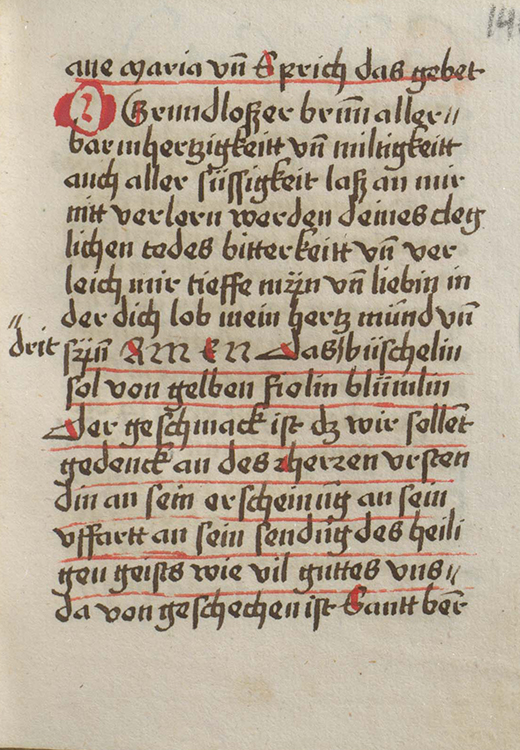 14
aue maria vn̄ Sprich das gebet
O Grundloßer brun̄ aller〃
barmhertzigkeitt vn̄ miltigkeitt
auch aller süssigkeit laß an mir
nitt verlern werden deines cleg
lichen todes bitterkeitt vn̄ ver
leich mir tieffe myn̄ vn̄ liebin in
der dich lob mein hertz mund vn̄
〃drit syn̄ AMEN Das büschelin
sol von gelben fiolin blümlin
Der geschmack ist dz wir sollent
gedenck an des herren vrsten
din an sein erscheinūg an sein
vffartt an sein sendūg des heili
gen geists wie vil guttes vns〃
da von geschechen ist Santt ber̄